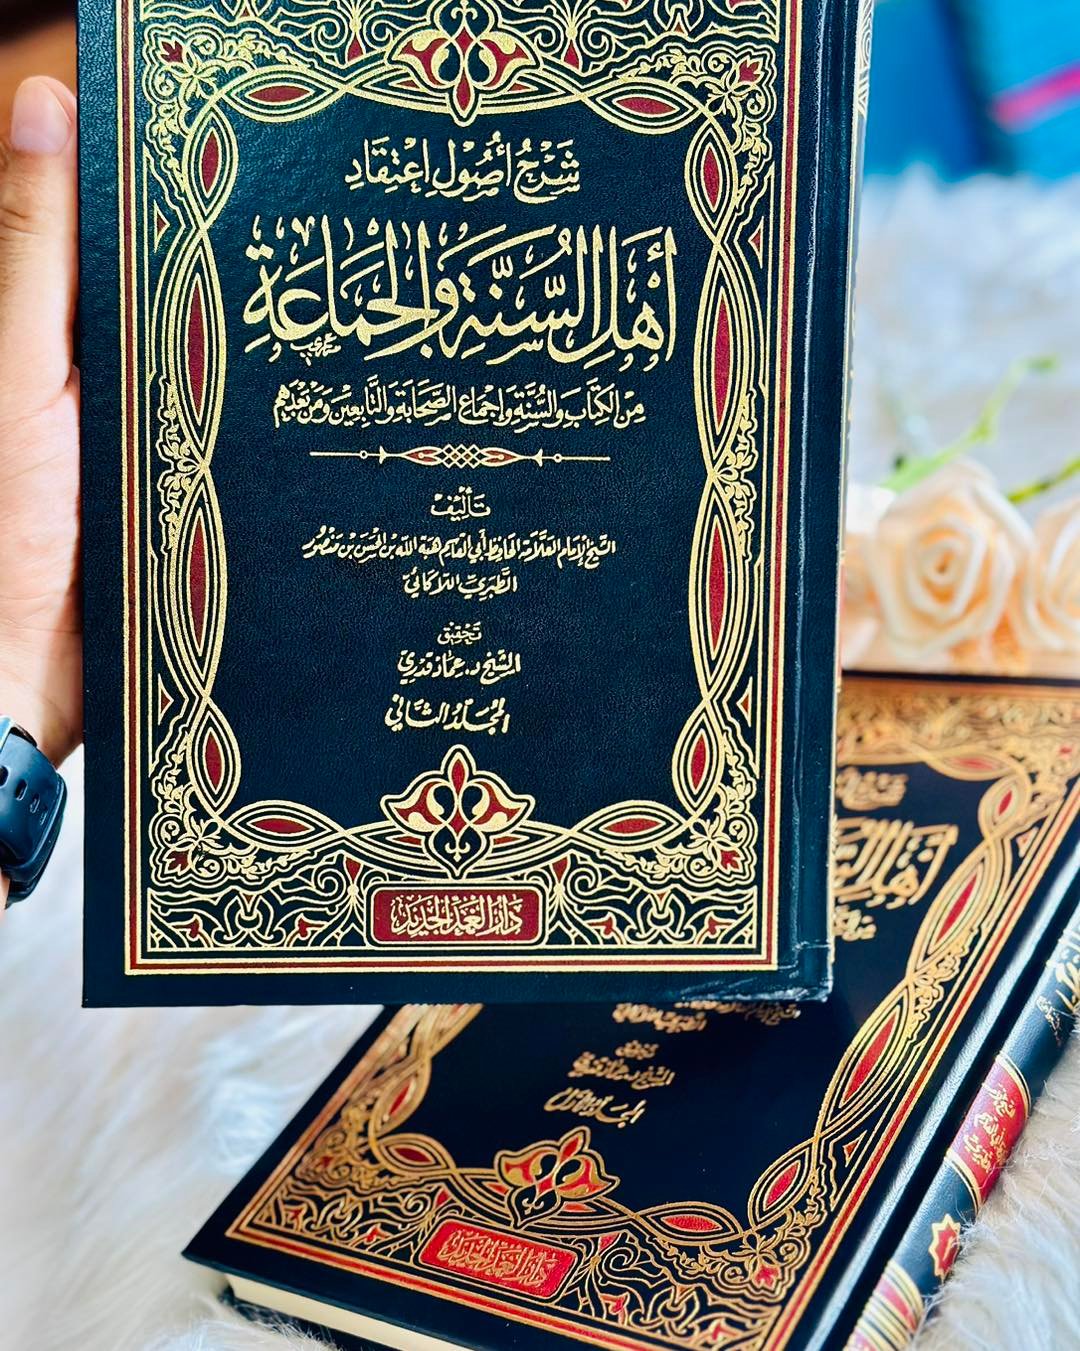 شَرْحُ أُصُولِ اعْتِقَادِ
أَهْلِ السُّنَّةِ وَالْجَمَاعَةِ
مِنَ الْكِتَابِ وَالسُّنَّةِ وَإِجْمَاعِ الصَّحَابَةِ وَالتَّابِعِينَ وَمَنْ بَعْدَهُمْ
تَأْلِيف
الشَّيْخ الإِمَام العَلَّامَة الحَافِظ أَبِي القَاسِم هِبَة اللَّه بْن الحَسَن بْن مَنْصُور
الطَّبَرِيّ اللَّالَكَائِيّ
تَحْقِيق
الشَّيْخ د. عِمَاد قَدْرِي
المُجَلَّدُ الثَّانِي
دَارُ الغَدِ الجَدِيد
أَهْلِ
الطبري اللالكائي
تحقيق
الشيخ د. عماد قدري
دار الغد الجديد